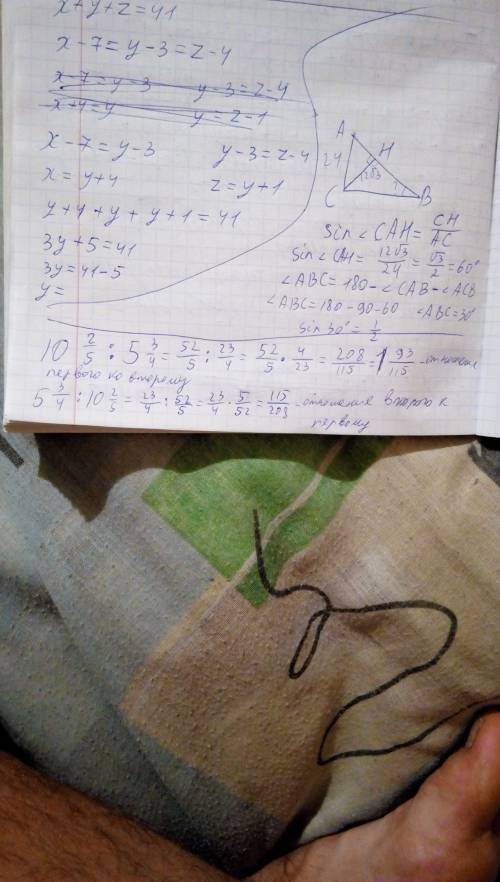 x+y+z=41
x-7=y-3=z-4
x-7=y-3 y-3=z-4
x+4=y y=z-1
x-7=y-3 y-3=z-4
x=y+4 z=y+1
y+4+y+y+1=41
3y+5=41
3y=41-5
y=
A
H
24
12√3
C
B
sin∠CAH=CH/AC
sin∠CAH=12√3/24=√3/2=60°
∠ABC=180-∠CAB-∠ACB
∠ABC=180-90-60 ∠ABC=30°
sin30°=1/2
10 2/5 : 5 3/4 = 52/5 : 23/4 = 52/5 · 4/23 = 208/115 = 1 93/115 - отношение
первого ко второму
5 3/4 : 10 2/5 = 23/4 : 52/5 = 23/4 · 5/52 = 115/208 - отношение второго к
первому